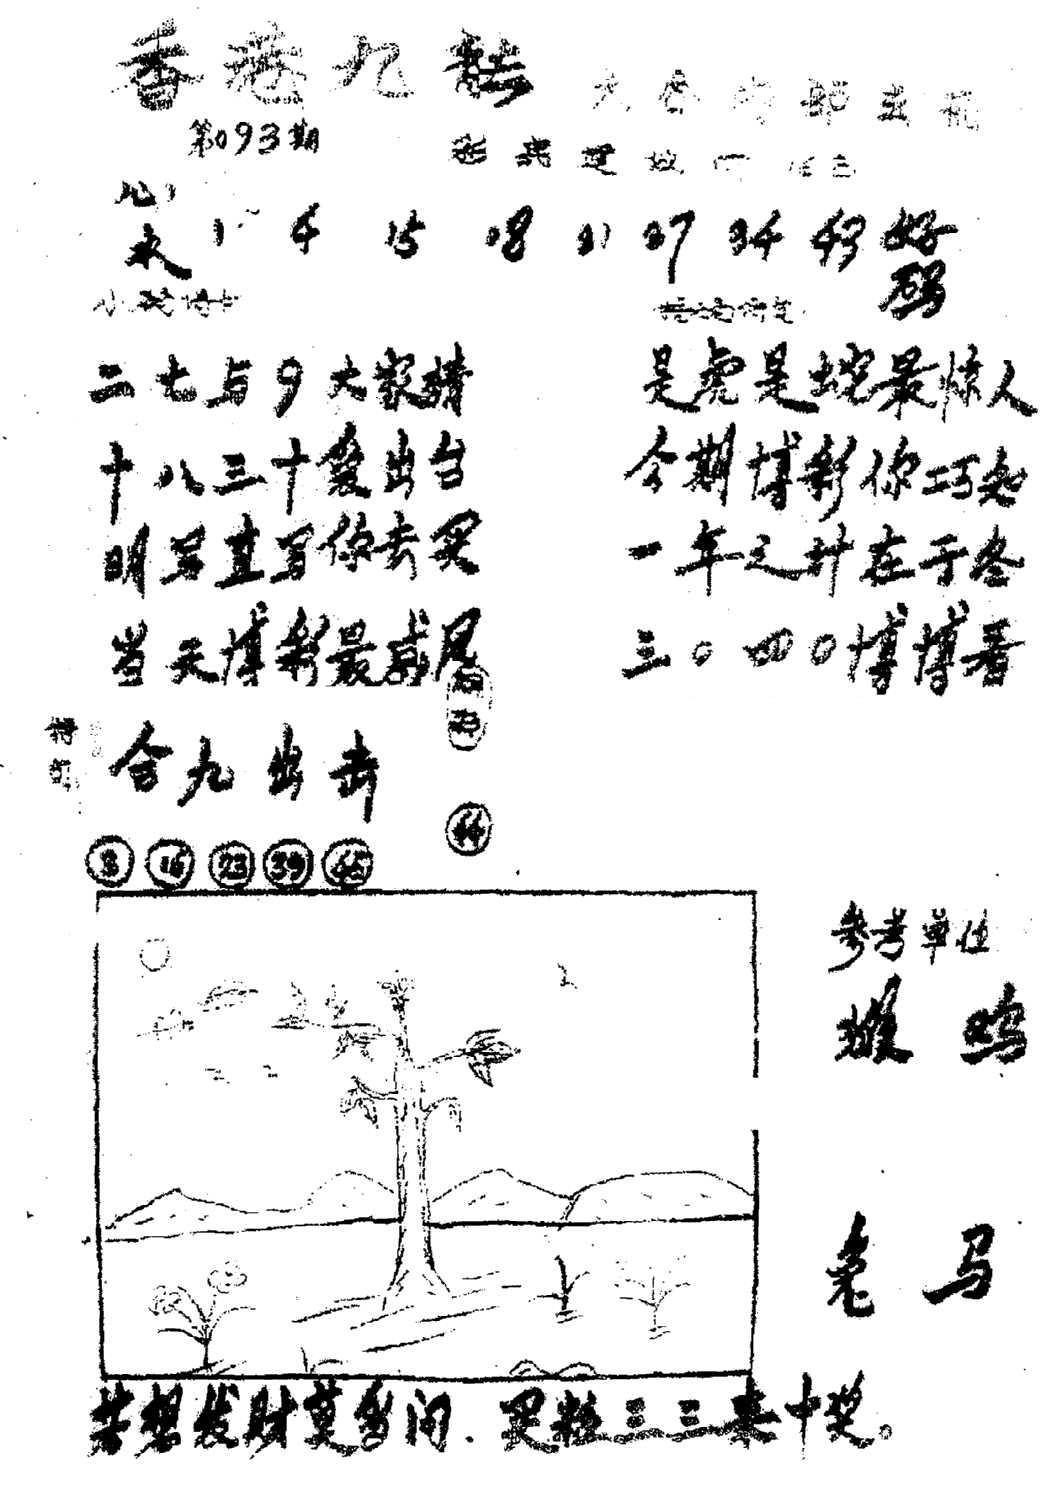 香港九龙
第093期
水 1 4 15 18 21 27 34 43 好码
二七与9大家猜
十八三十发出台
明写直写你去买
当天博彩最威风
是虎是蛇最惊人
今期博彩你巧知
一年之计在于冬
三〇四〇博博看
合九出击
44
3 16 23 39 45
参考单位
猴 鸡
兔 马
若想发财莫多问.买粒三三来中奖。